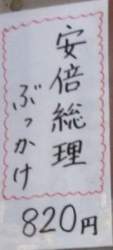 安倍総理
ぶっかけ
820円